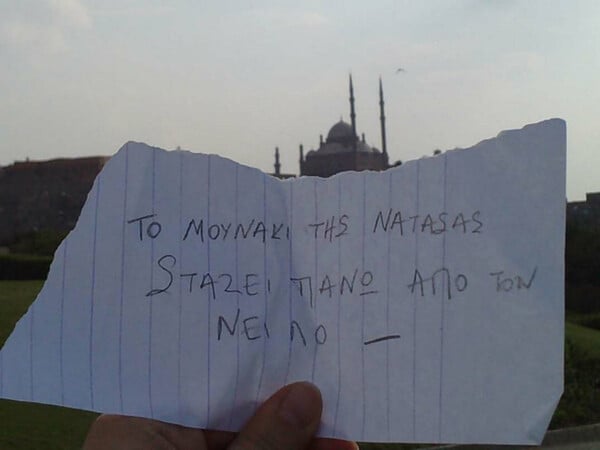 ΤΟ ΜΟΥΝΑΚΙ ΤΗS ΝΑΤΑSΑS
SΤΑΖΕΙ ΠΑΝΩ ΑΠΟ ΤΟΝ
ΝΕΙΛΟ —